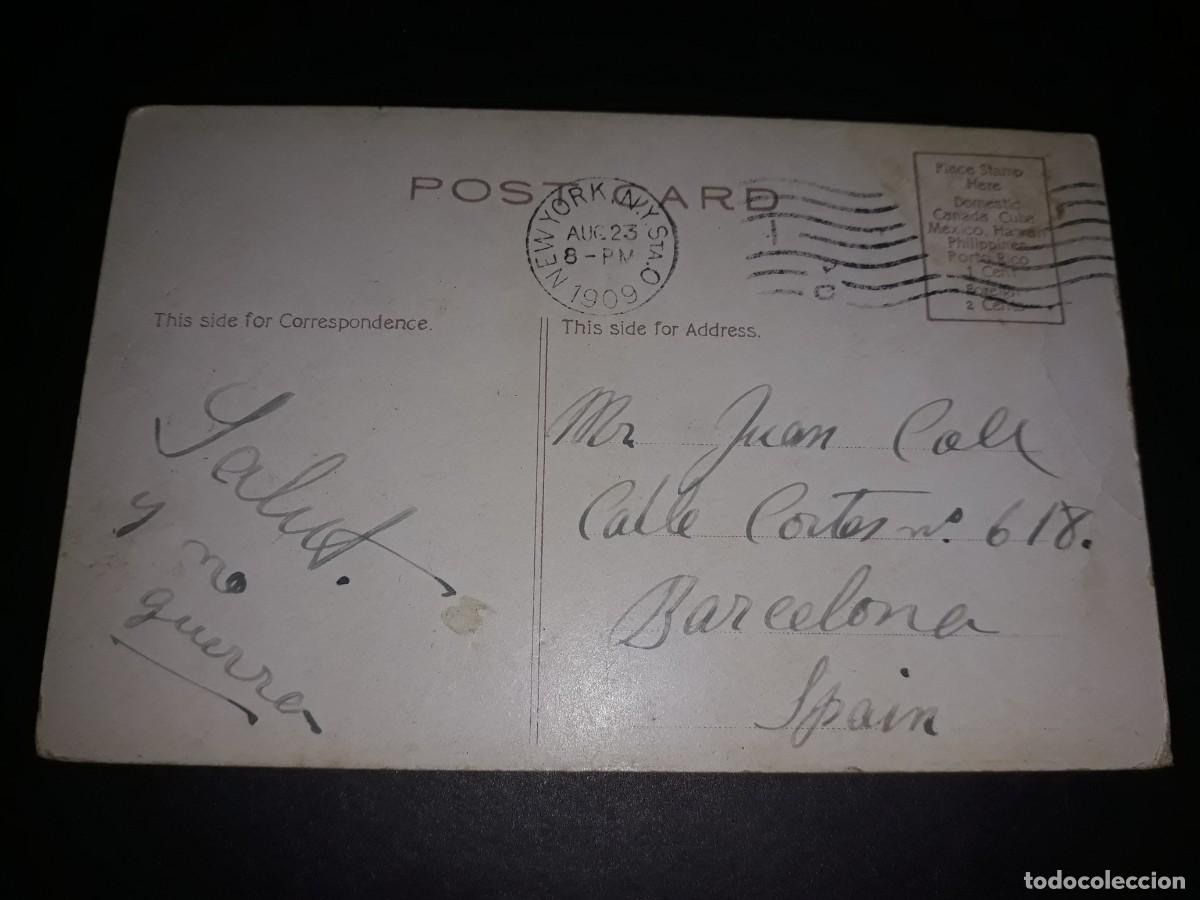 POST CARD
NEW YORK, N.Y. STA. O
AUG 23
8-PM
1909
Place Stamp
Here
Domestic
Canada Cuba
Mexico, Hawaii
Philippines
Porto Rico
1 Cent
Foreign
2 Cents
This side for Correspondence.
This side for Address.
Salut.
y no
guerra
Mr Juan Coll
Calle Cortes nº. 618.
Barcelona
Spain
todocoleccion